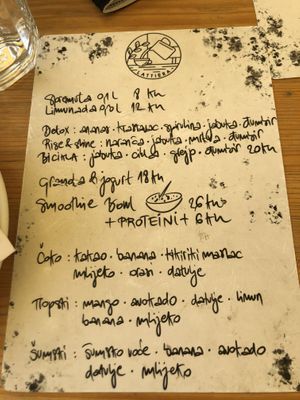 LATTIERA
Spremuta 0,1L 8 kn
Limunada 0,3L 12 kn
Detox: ananas · krastavac · spirulina · jabuka · đumbir
Rise & shine: naranča · jabuka · mrkva · đumbir
jabuka · cikla · đumbir 20 kn
Granola & jogurt 18 kn
Smoothie Bowl 26 kn
+ PROTEINI + 6 kn
Čoko: kakao · banana · kikiriki maslac
mlijeko · orasi · datulje
Tropski: mango · avokado · datulje · limun
banana · mlijeko
Šumski: šumsko voće · banana · avokado
datulje · mlijeko